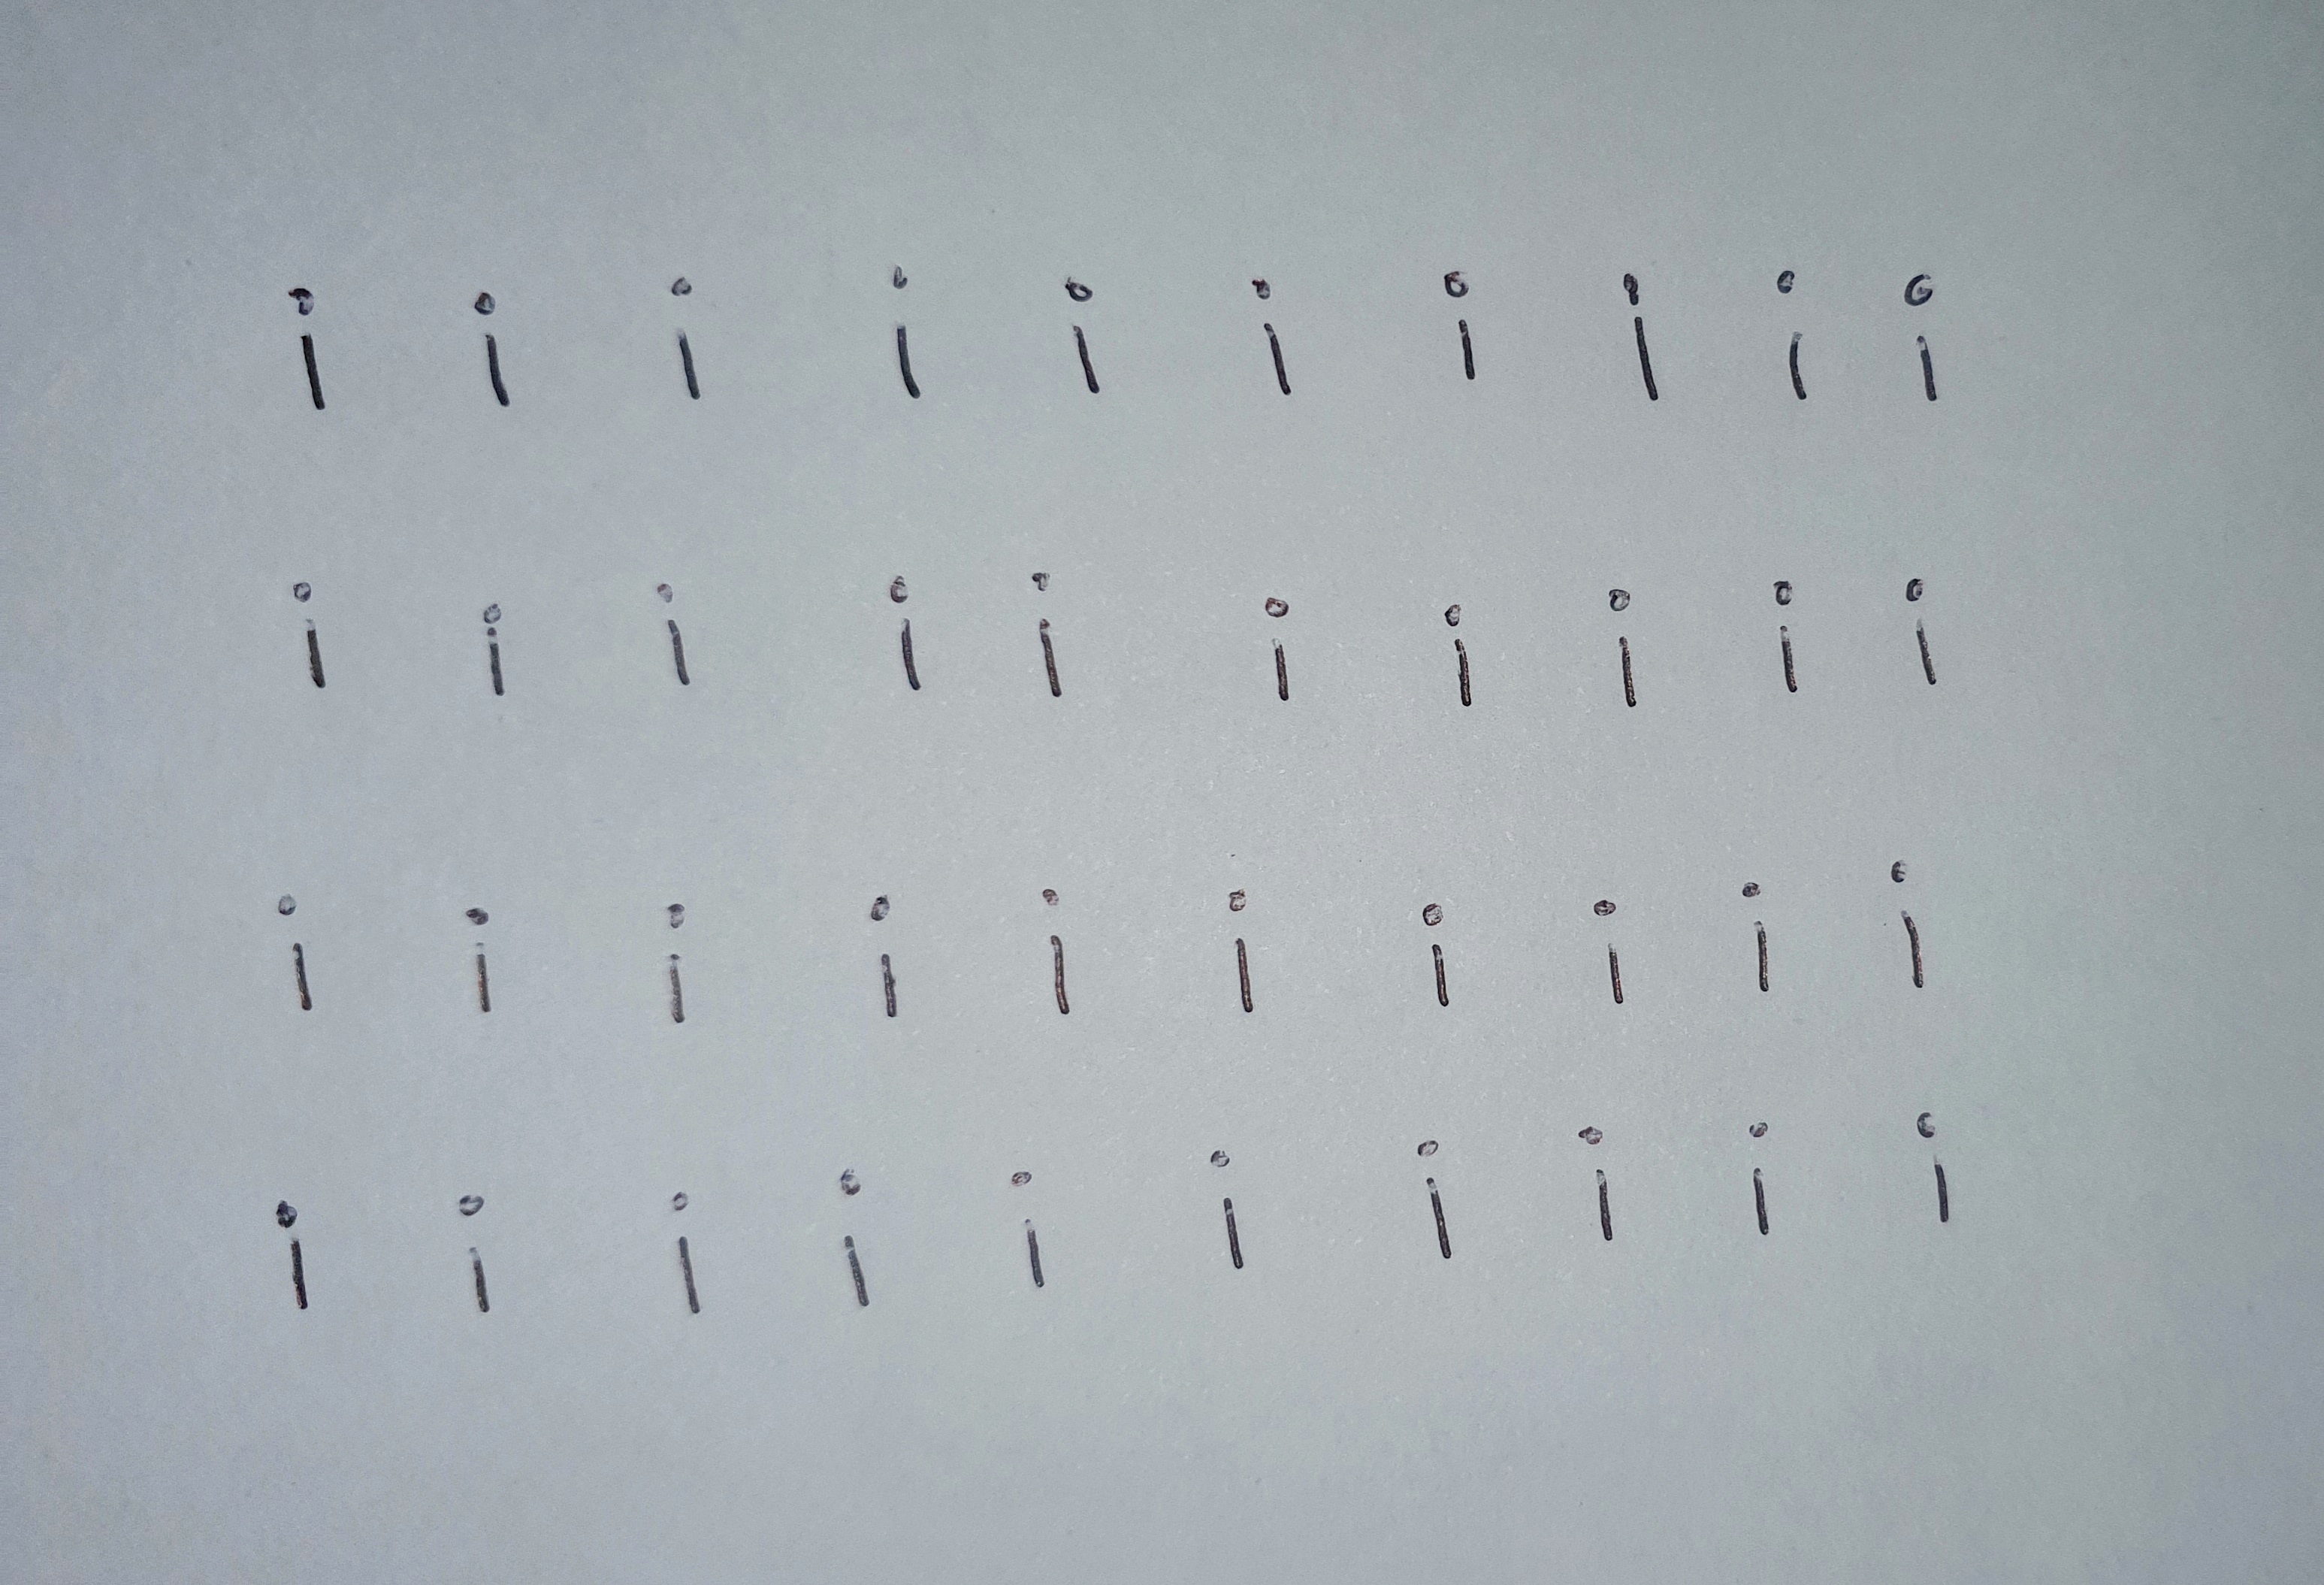 i i i i i i i i i i
i i i i i i i i i i
i i i i i i i i i i
i i i i i i i i i i